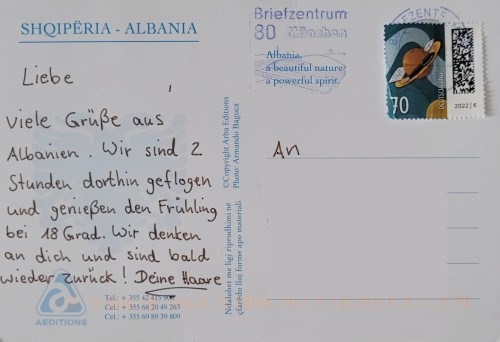 SHQIPËRIA - ALBANIA
Liebe ,
viele Grüße aus
Albanien. Wir sind 2
Stunden dorthin geflogen
und genießen den Frühling
bei 18 Grad. Wir denken
an dich und sind bald
wieder zurück! Deine Haare
AEDITIONS
Tel.: + 355 42 415
Cel.: + 355 68 20 49 263
Cel.: + 355 69 89 39 809
©Copyright Arba Editions
Photo: Armando Babaca
Ndalohet me ligj riprodhimi në
çfarëdo lloj forme apo materiali
Briefzentrum
80 München
Albania,
a beautiful nature
a powerful spirit.
70
DEUTSCHLAND
2022 | €
An